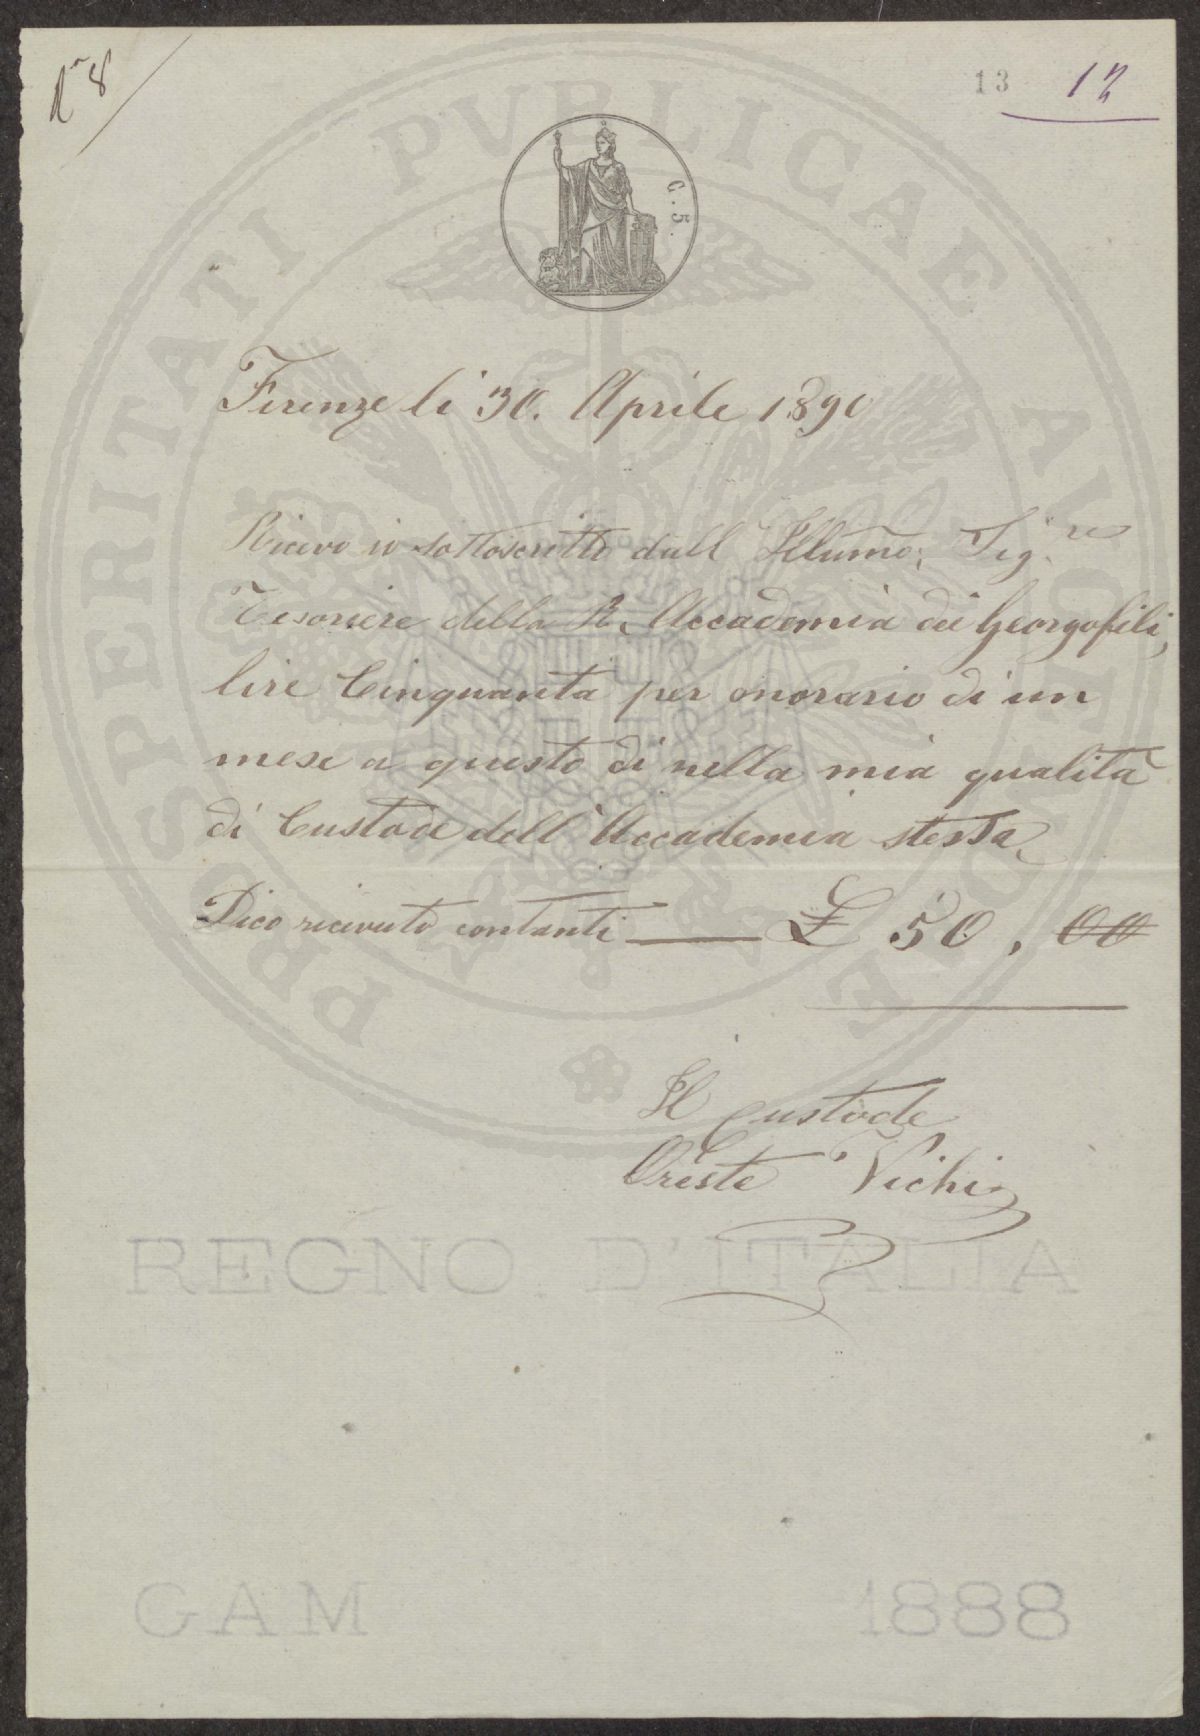 N° 8
13 12
C. 5.
PROSPERITATI PVBLICAE AVGENDAE
Firenze li 30. Aprile 1890
Ricevo io sottoscritto dall Illumo; Sig.re
Tesoriere della R. Accademia dei Georgofili,
lire Cinquanta per onorario di un
mese a questo dì nella mia qualità
di Custode dell'Accademia stessa
Dico ricevuto contanti — £ 50, 00
Il Custode
Oreste Vichi
REGNO D'ITALIA
GAM 1888